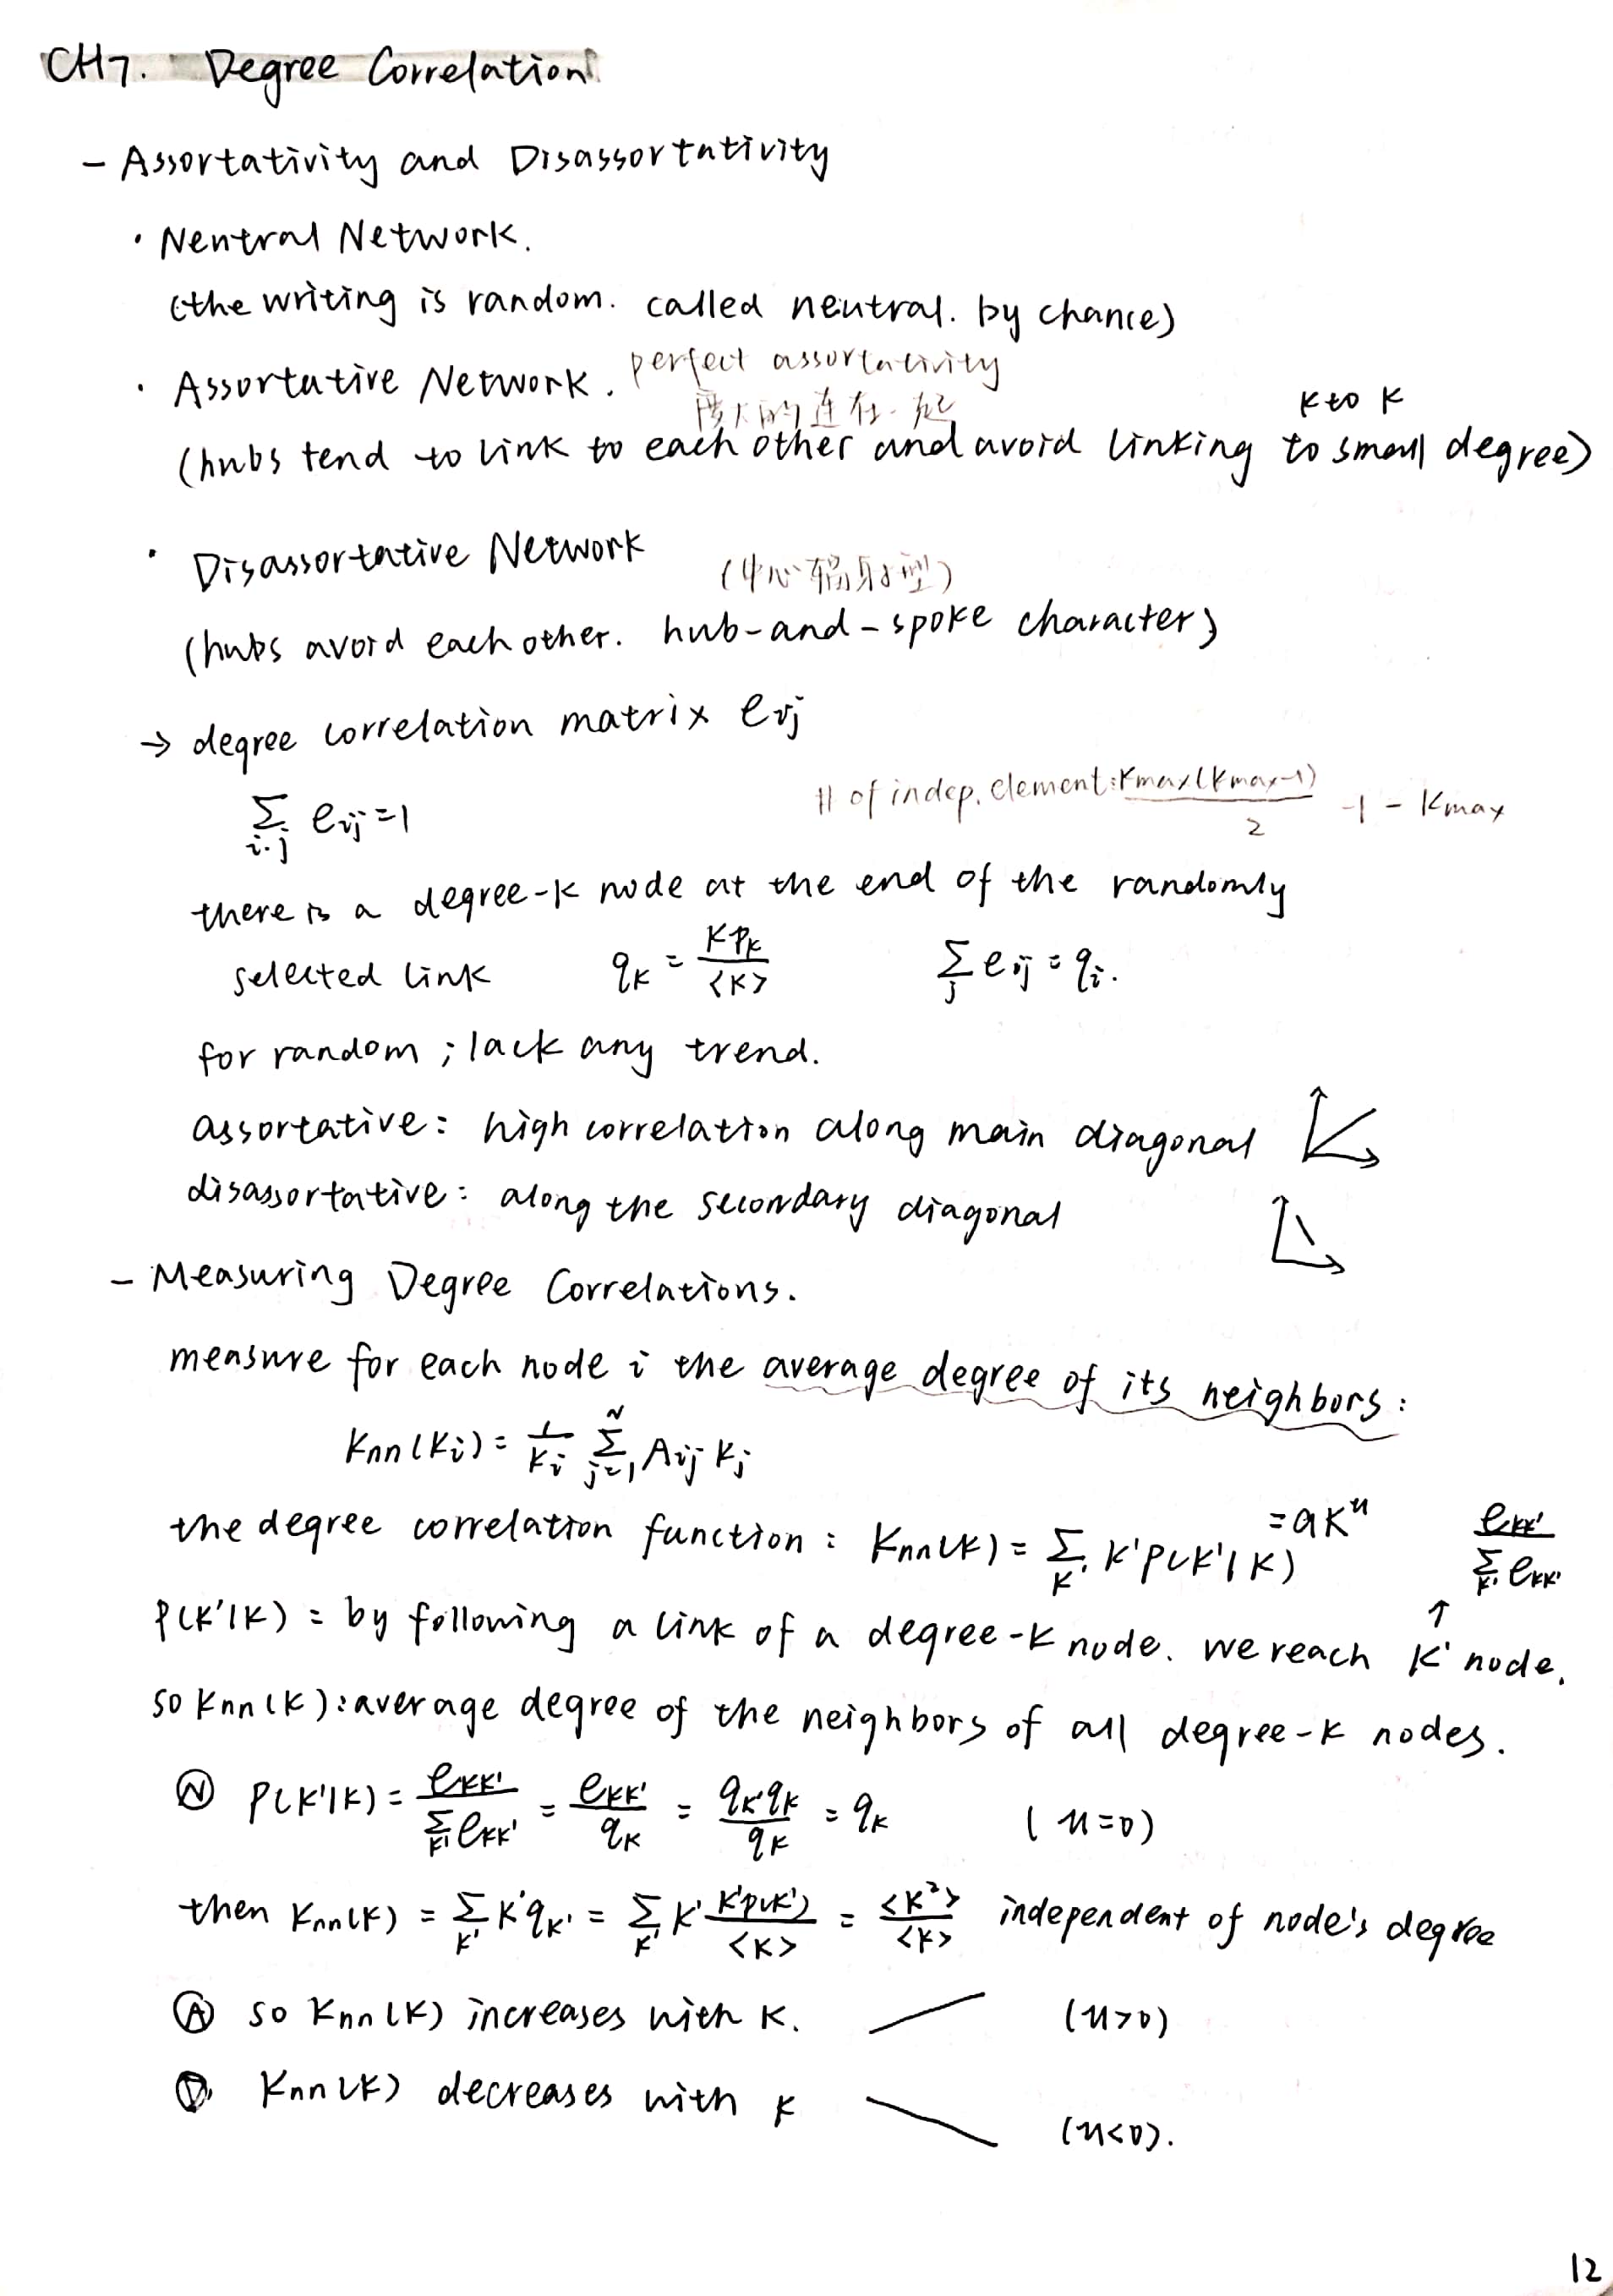 CH7. Degree Correlation
- Assortativity and Disassortativity
· Neutral Network.
(the writing is random. called neutral. by chance)
· Assortative Network. perfect assortativity
的连在一起 k to k
(hubs tend to link to each other and avoid linking to small degree)
· Disassortative Network
(中心辐射型)
(hubs avoid each other. hub-and-spoke character)
→ degree correlation matrix eij
∑i.j eij = 1 # of indep. element: kmax(kmax-1)/2 -1 - kmax
there is a degree-k node at the end of the randomly
selected link qk = k pk / <k> ∑j eij = qi.
for random ; lack any trend.
assortative: high correlation along main diagonal
disassortative: along the secondary diagonal
- Measuring Degree Correlations.
measure for each node i the average degree of its neighbors:
knn(ki) = 1/ki ∑j=1^N Aij kj
the degree correlation function : knn(k) = ∑k' k' p(k'|k) = ak^μ ekk' / ∑k' ekk'
P(k'|k) = by following a link of a degree-k node. we reach k' node. ↑
so knn(k): average degree of the neighbors of all degree-k nodes.
Ⓝ P(k'|k) = ekk' / ∑k' ekk' = ekk' / qk = qk' qk / qk = qk (μ=0)
then knn(k) = ∑k' k' qk' = ∑k' k' k'p(k') / <k> = <k²> / <k> independent of node's degree
Ⓐ so knn(k) increases with k. (μ>0)
Ⓓ knn(k) decreases with k (μ<0).
12